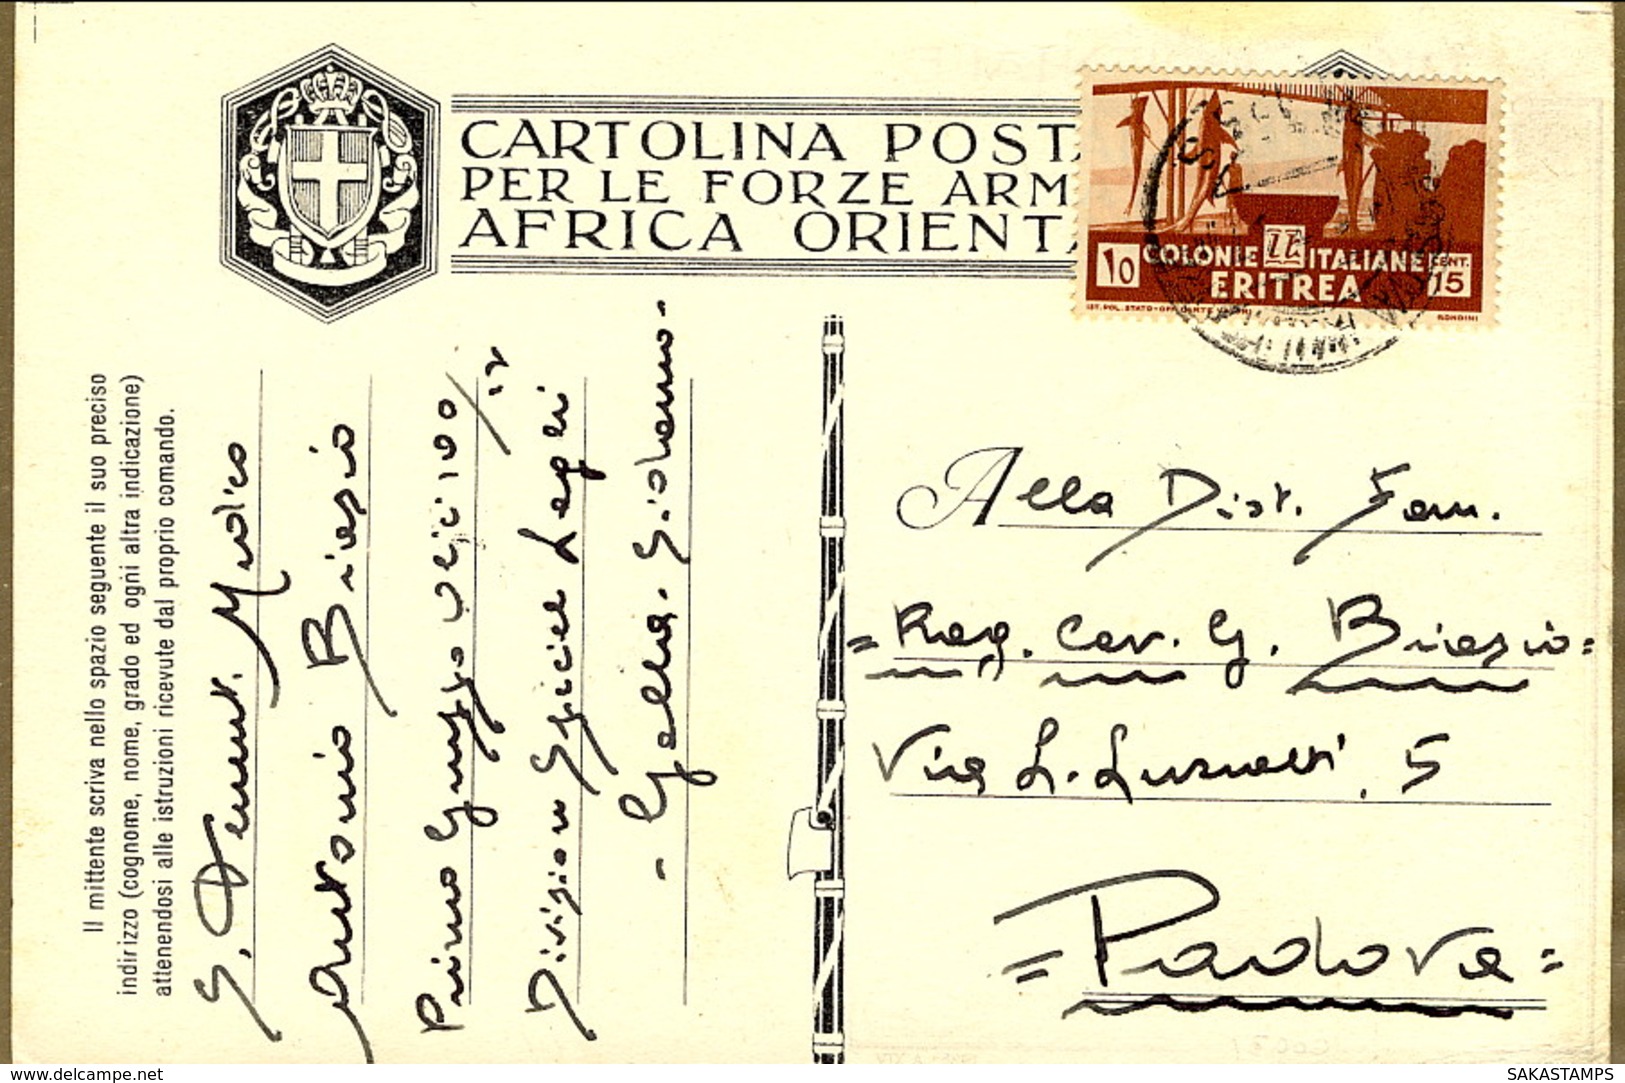 CARTOLINA POSTA
PER LE FORZE ARM
AFRICA ORIENTA
10 COLONIE ITALIANE CENT. 15
ERITREA
IST. POL. STATO-OFF. CARTE VALORI
RONDINI
Il mittente scriva nello spazio seguente il suo preciso
indirizzo (cognome, nome, grado ed ogni altra indicazione)
attenendosi alle istruzioni ricevute dal proprio comando.
S. Tenent. Medico
Antonio Biasio
Primo Gruppo
Divisione Speciale Laghi
Alla Dist. Fam.
= Rag. Cav. G. Biasio =
Via L. Luzzatti, 5
= Padova =
www.delcampe.net
SAKASTAMPS